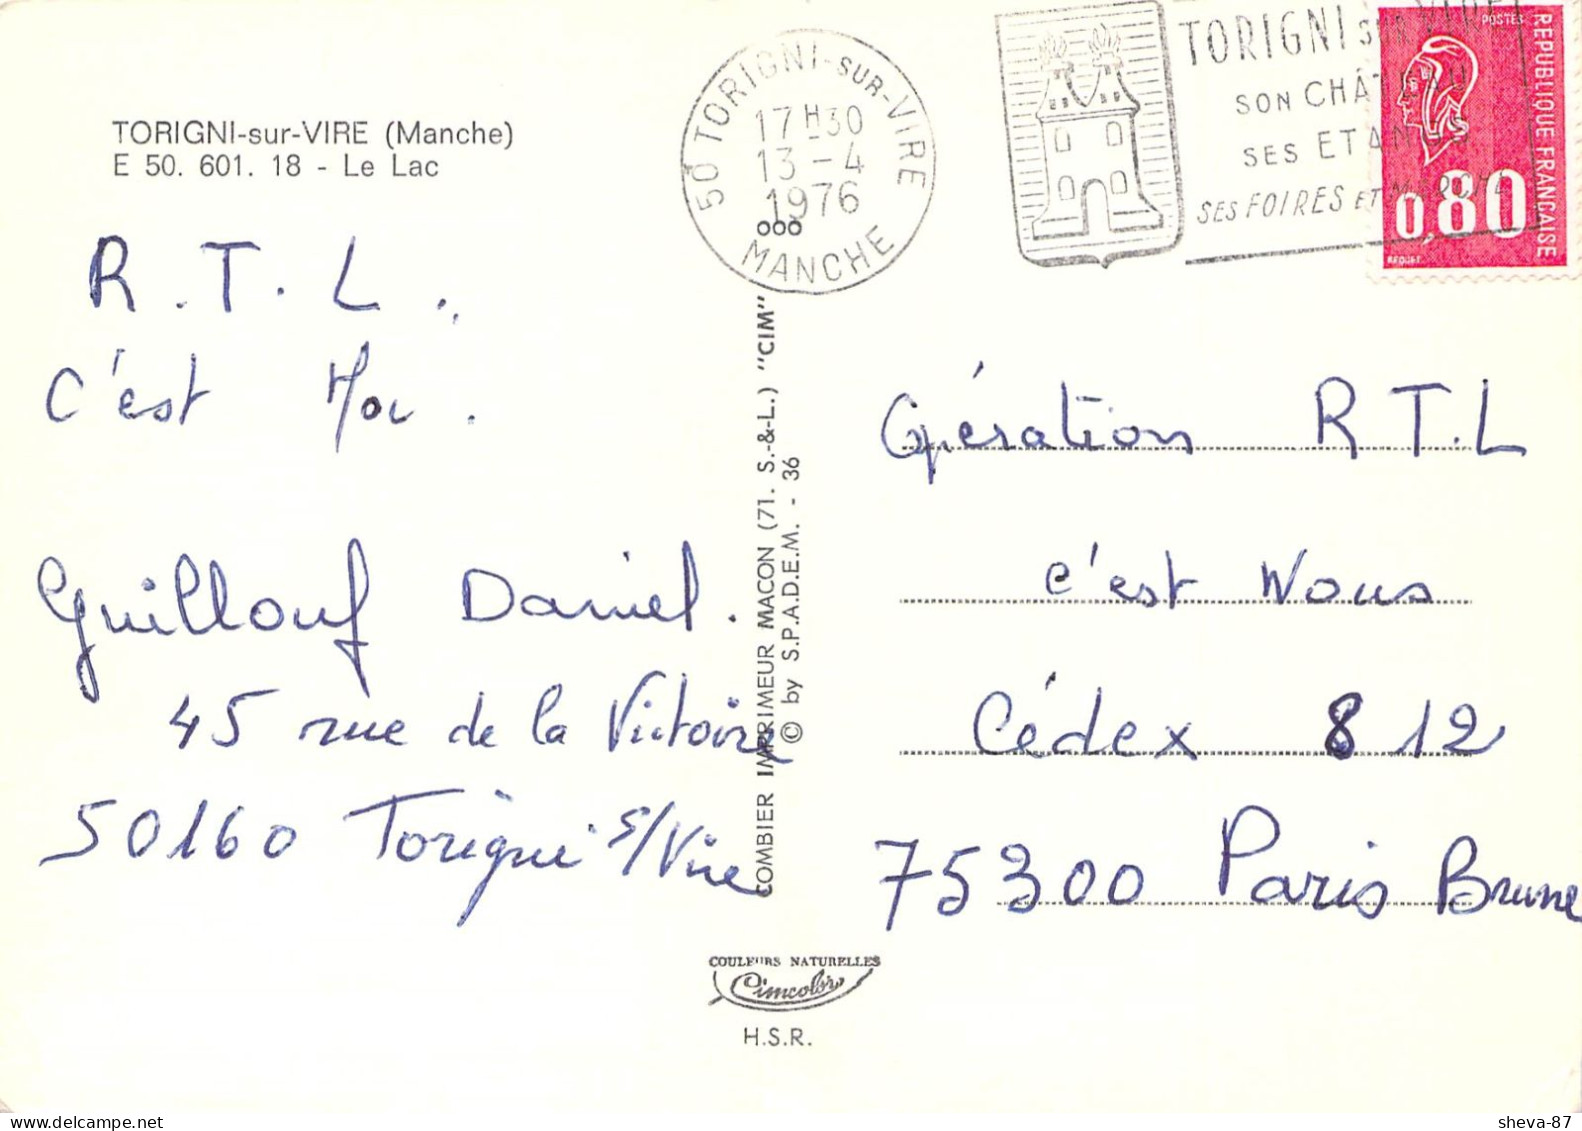 TORIGNI-sur-VIRE (Manche)
E 50. 601. 18 - Le Lac
R.T.L.
C'est Moi.
Guillouf Daniel.
45 rue de la Victoire
50160 Torigni s/Vire
50 TORIGNI-SUR-VIRE
17H30
13-4
1976
MANCHE
TORIGNI SUR VIRE
SON CHÂTEAU
SES ETANGS
SES FOIRES ET MARCHÉ
POSTES
REPUBLIQUE FRANCAISE
0,80
BEQUET
COMBIER IMPRIMEUR MACON (71. S.-&-L.) "CIM"
© by S.P.A.D.E.M. - 36
Opération R T.L
c'est Nous
Cédex 812
75300 Paris Brune
COULEURS NATURELLES
Cimcolor
H.S.R.
sheva-87